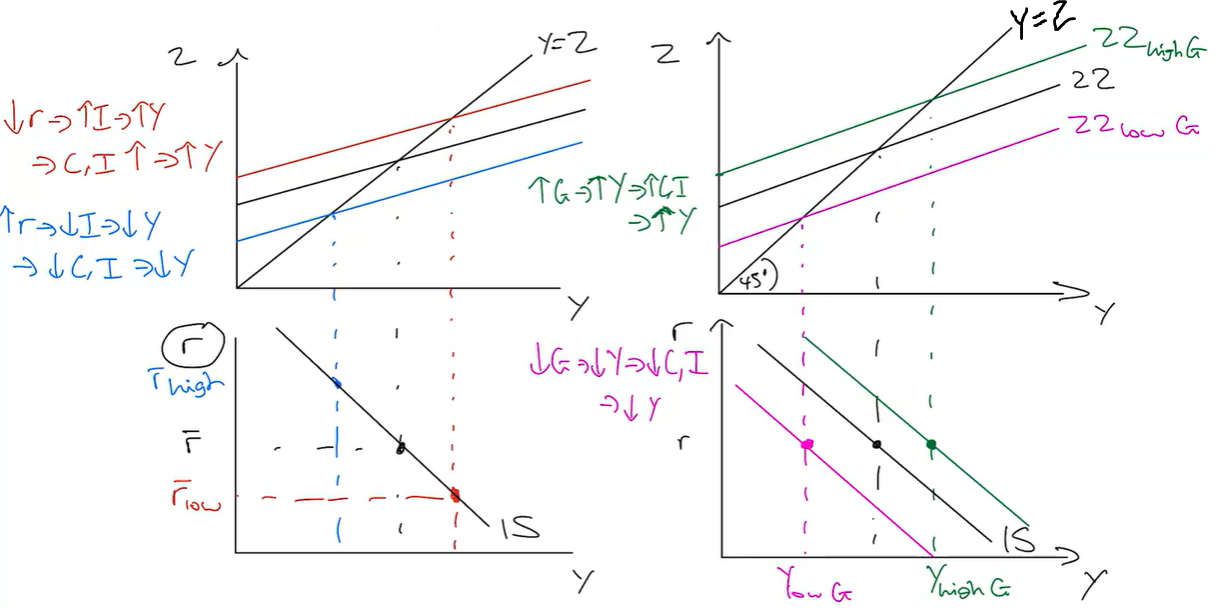 Z
Y=Z
↓r⇒↑I⇒↑Y
⇒C,I↑⇒↑Y
↑r⇒↓I⇒↓Y
⇒↓C,I⇒↓Y
Y
r
r̄high
r̄
r̄low
IS
Y
Z
Y=Z
ZZhighG
ZZ
ZZlow G
↑G⇒↑Y⇒↑C,I
⇒↑Y
45°
Y
r
↓G⇒↓Y⇒↓C,I
⇒↓Y
r
IS
Ylow G
Yhigh G
Y